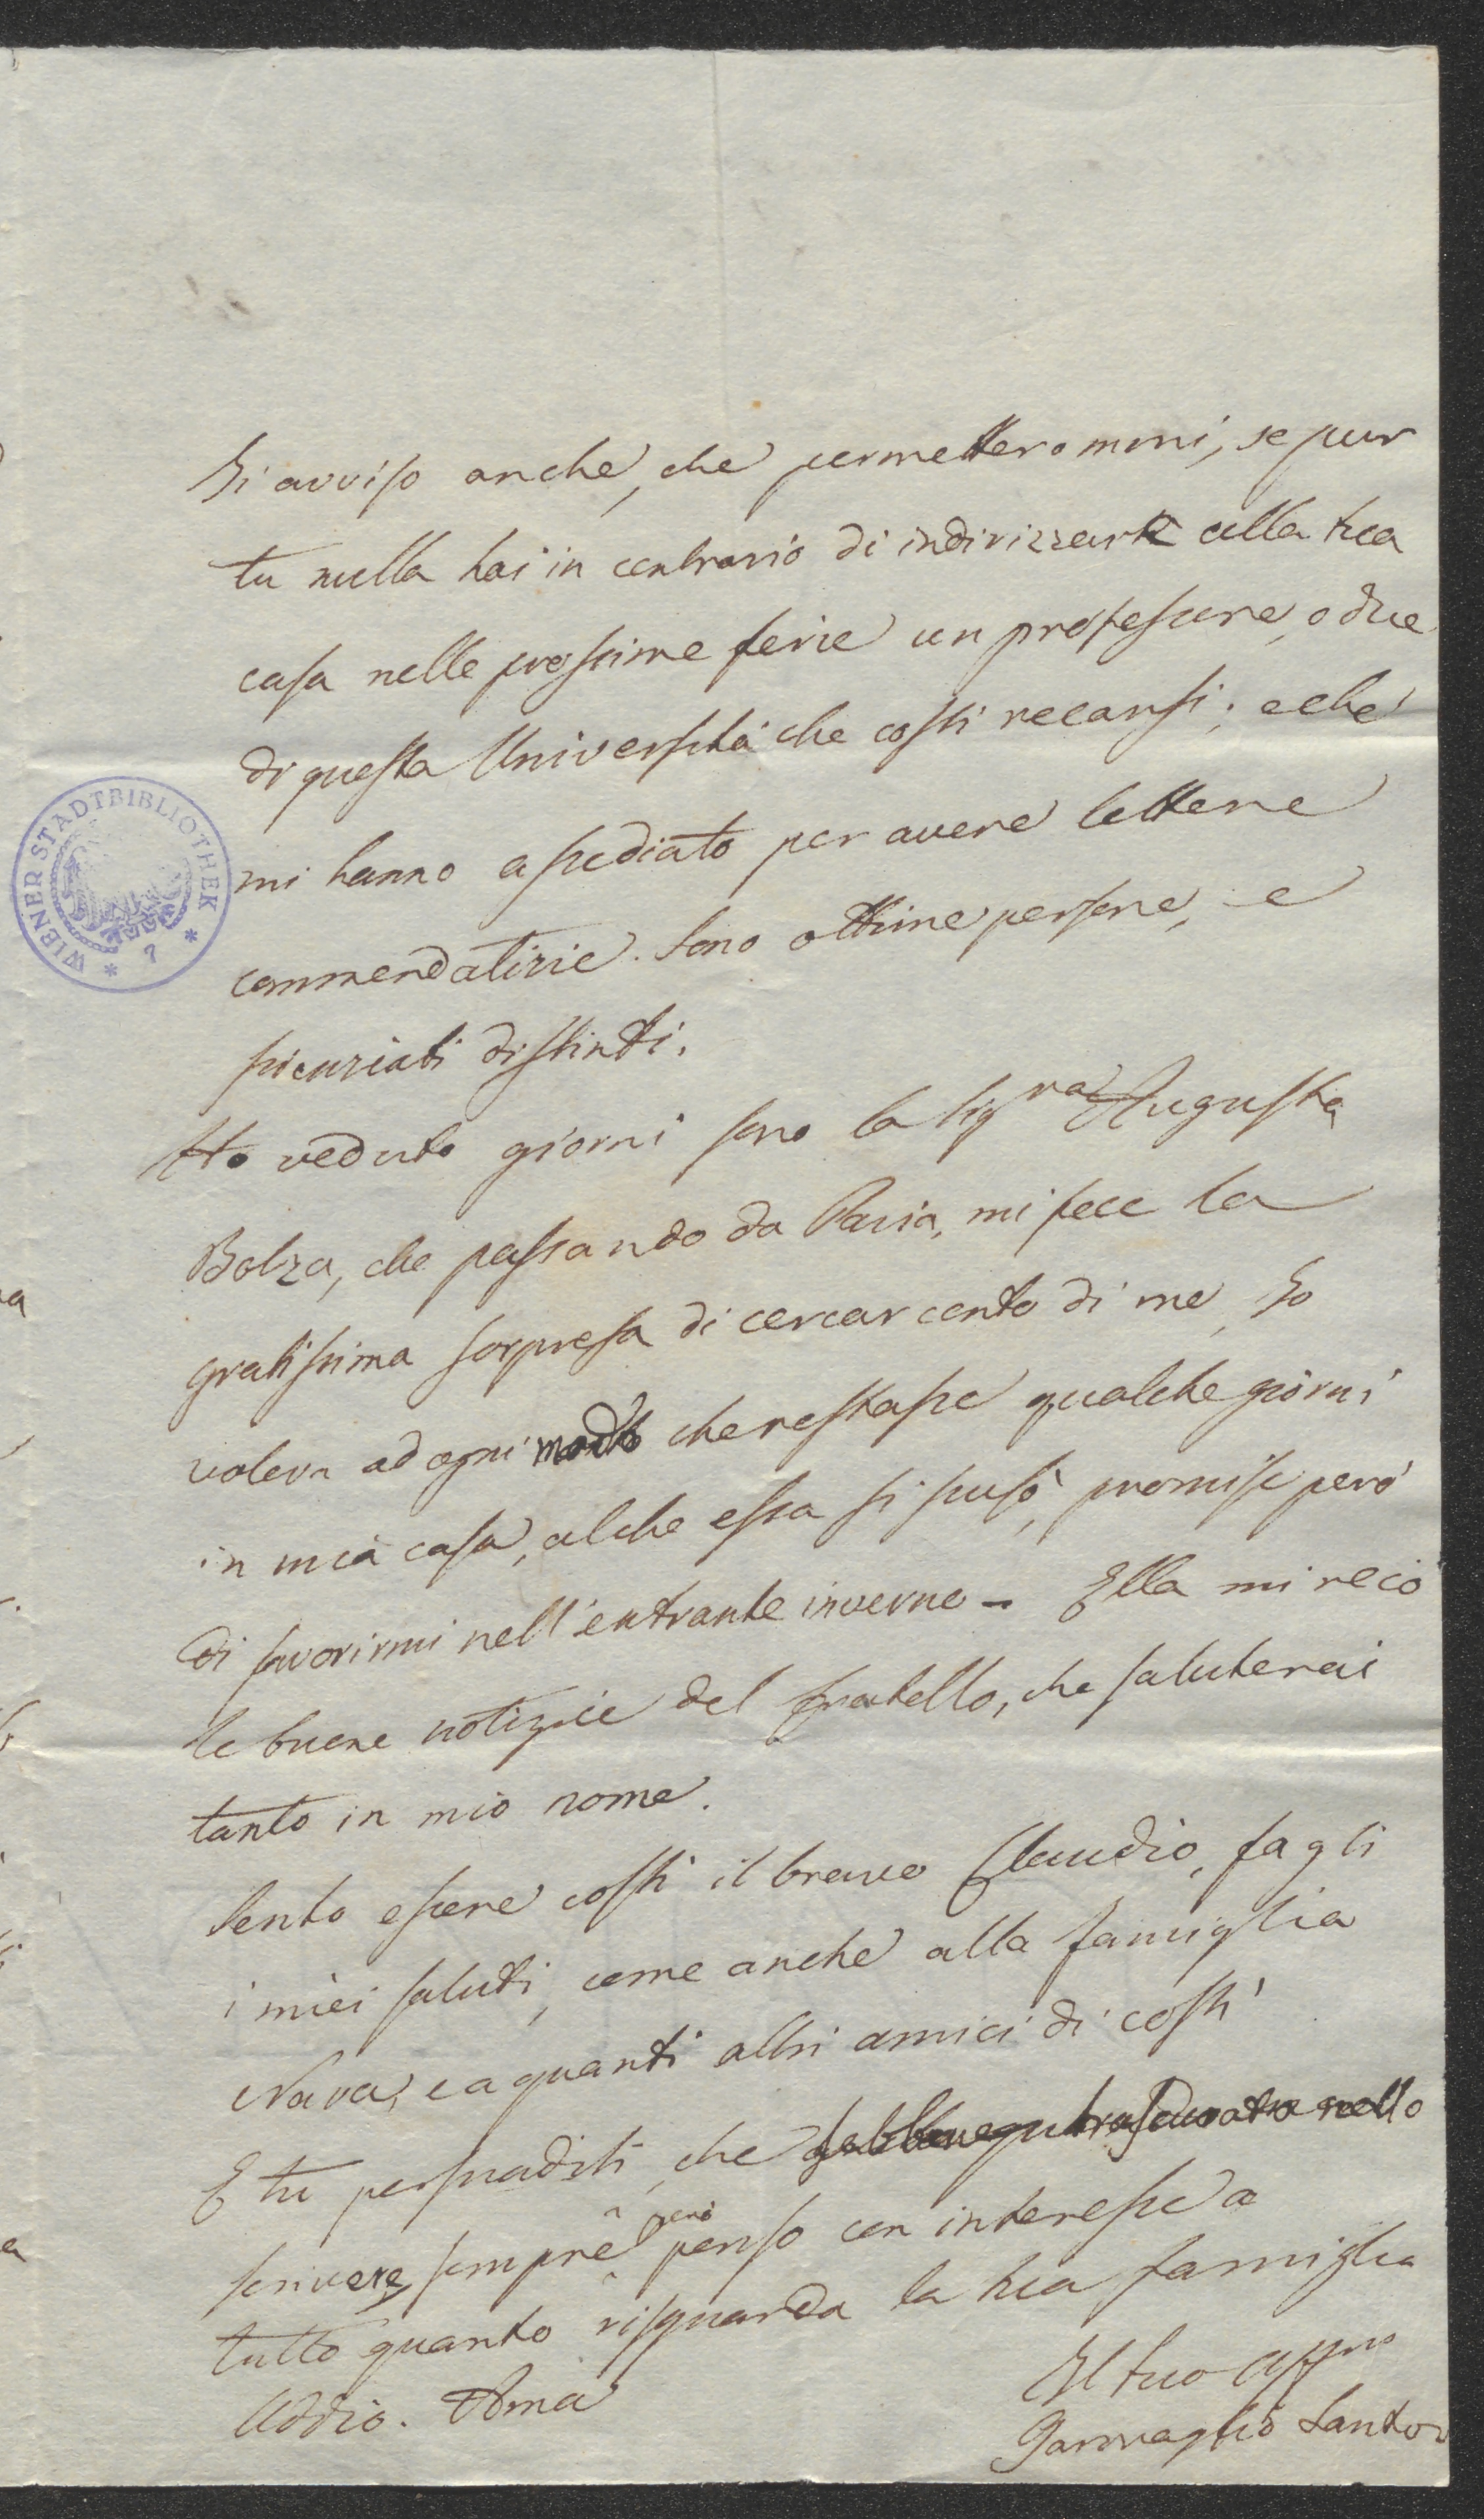 Ti avviso anche, che permettero mmi, se pur
tu nulla hai in contrario di indirizzare alla tua
casa nelle prossime ferie un professore, o due
di questa Università che costì recansi; e che
mi hanno assediato per avere lettere
commendatizie. Sono ottime persone, e
scienziati distinti.
Ho veduto giorni sono la Sigra Augusta
Bolza, che passando da Pavia, mi fece la
gratissima sorpresa di cercar conto di me, Io
voleva ad ogni modo che restasse qualche giorni
in mia casa, al che essa si scusò, promise però
di favorirmi nell'entrante inverno – Ella mi recò
le buone notizie del fratello, che saluterai
tanto in mio nome.
Sento essere costì il bravo Claudio, fagli
i miei saluti, come anche alla famiglia
Nava, e a quanti altri amici di costì
E tu persuaditi, che sebbene trascurato nello
scrivere, sempre però penso con interesse a
tutto quanto risguarda la tua famiglia
Addio. Ama
Il tuo affmo
Garovaglio Santo
WIENER STADTBIBLIOTHEK
* 7 *